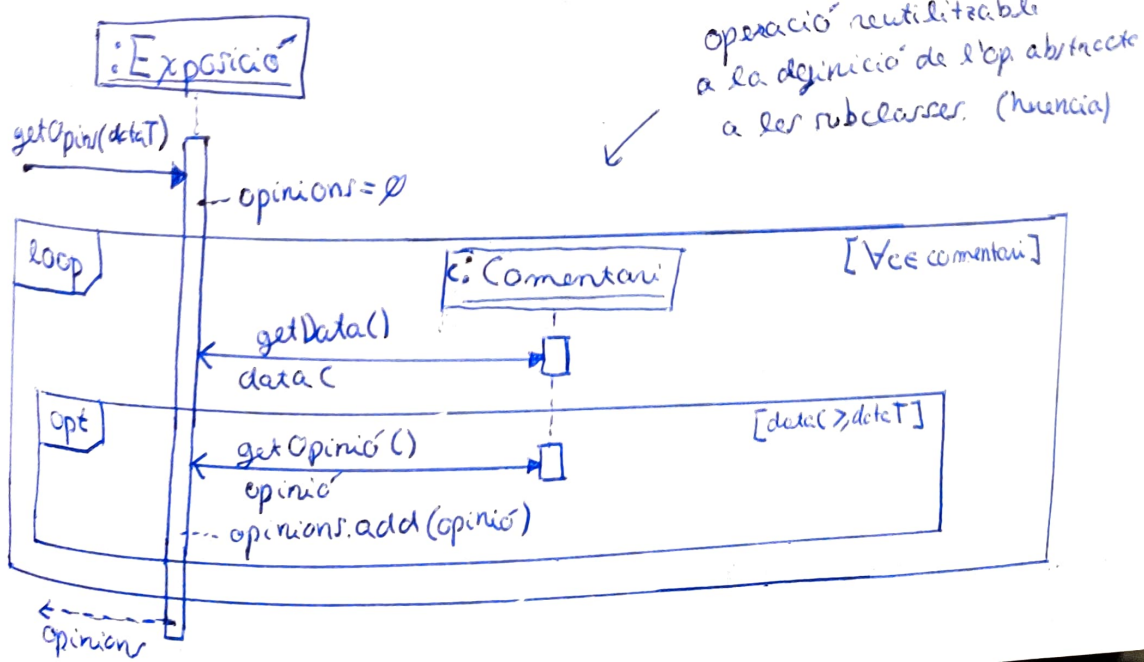 operació reutilitzable
a la definició de l'op. abstracte
a les subclasses. (herencia)
:Exposició
getOpins(dataT)
opinions = ∅
loop
[∀c∈ comentari]
c: Comentari
getData()
dataC
opt
[dataC ≥ dataT]
getOpinió()
opinió
opinions.add(opinió)
opinions